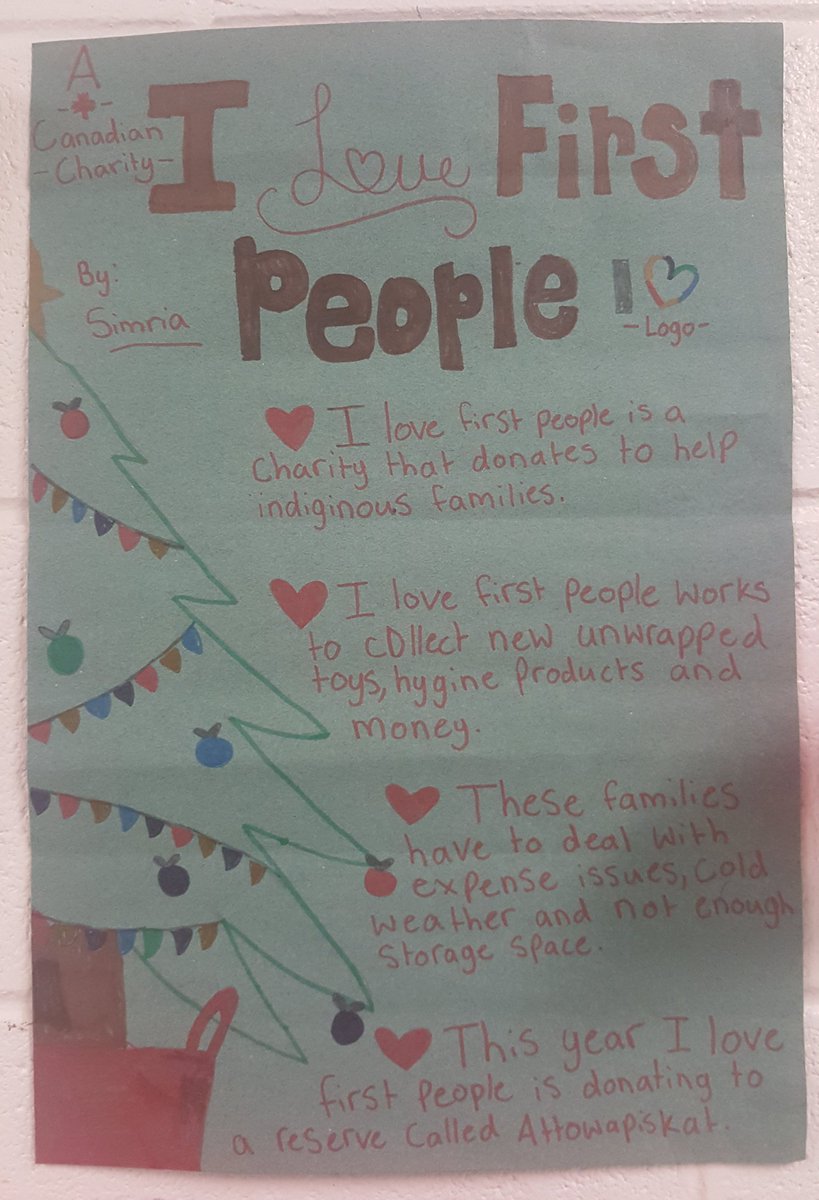 A
Canadian
-Charity-
I Love First
People
By:
Simria
-Logo-
I love first people is a
charity that donates to help
indiginous families.
I love first people works
to collect new unwrapped
toys, hygine products and
money.
These families
have to deal with
expense issues, cold
weather and not enough
storage space.
This year I love
first people is donating to
a reserve called Attowapiskat.